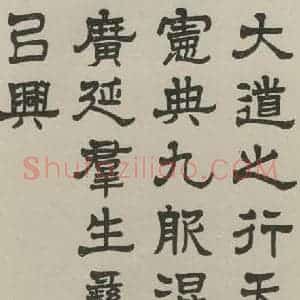 大道之行天
憲典九服混
廣延羣生彝
㠯興
Shufaziliao.com